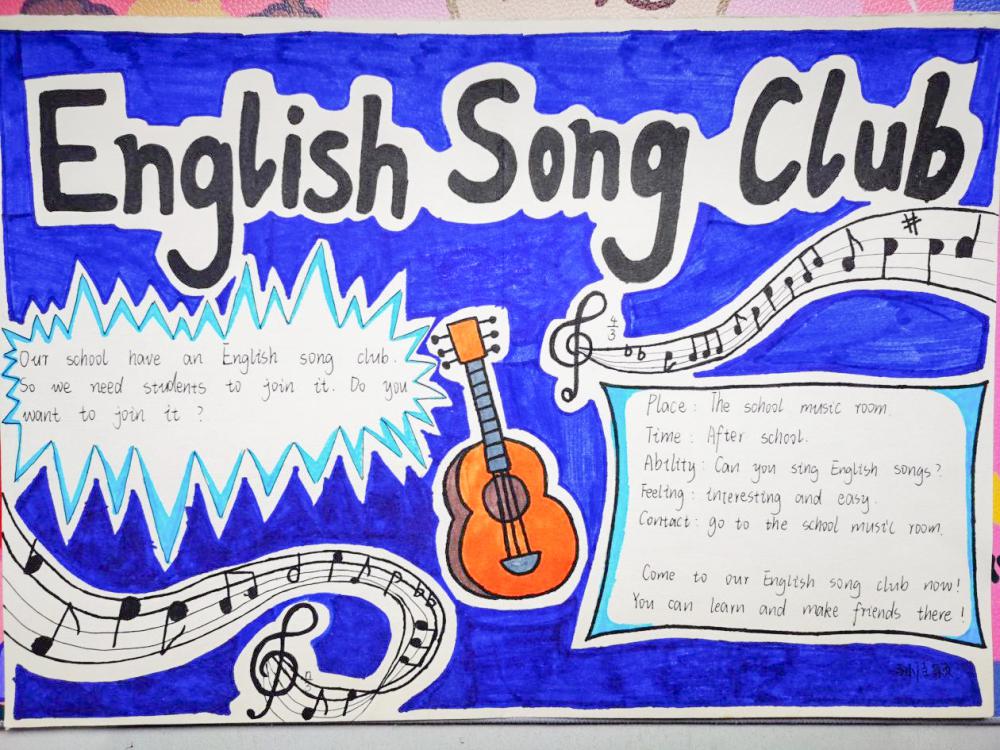 English Song Club
Our school have an English song club.
So we need students to join it. Do you
want to join it ?
4
3
Place : The school music room.
Time : After school.
Ability : Can you sing English songs?
Feeling : interesting and easy.
Contact : go to the school music room.
Come to our English song club now!
You can learn and make friends there !